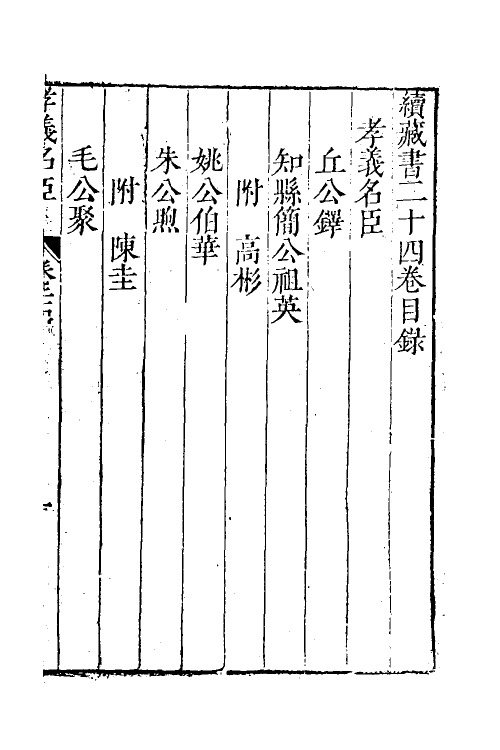 續藏書二十四卷目錄
孝義名臣
丘公鐸
知縣簡公祖英
附 高彬
姚公伯華
朱公煦
附 陳圭
毛公聚
孝義名臣